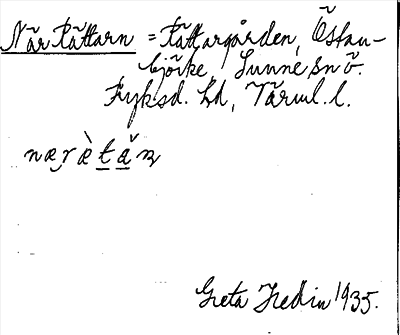 När Tättarn = Tättargården, Östan-
björke, Sunne sn ö.
Fryksd. hd, Värml. l.
Greta Hedin 1935.